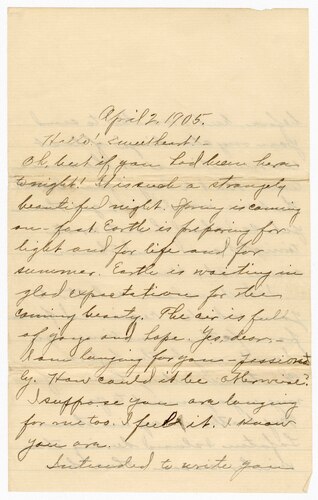 April 2, 1905.
Hallo! - Sweetheart! -
Oh, but if you had been here
to night! It is such a strangely
beautiful night. Spring is coming
on - fast Earth is preparing for
light and for life and for
summer. Earth is waiting in
glad expectation for the
coming beauty. The air is full
of joys and hope. Yes, dear -
I am longing for you -
ly. How could it be otherwise?
I suppose you are longing
for me too. I feel it. I know
you are.
Intended to write you